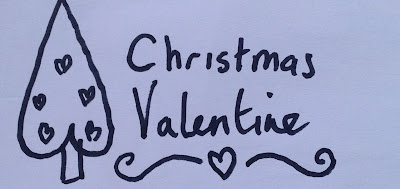 Christmas
Valentine